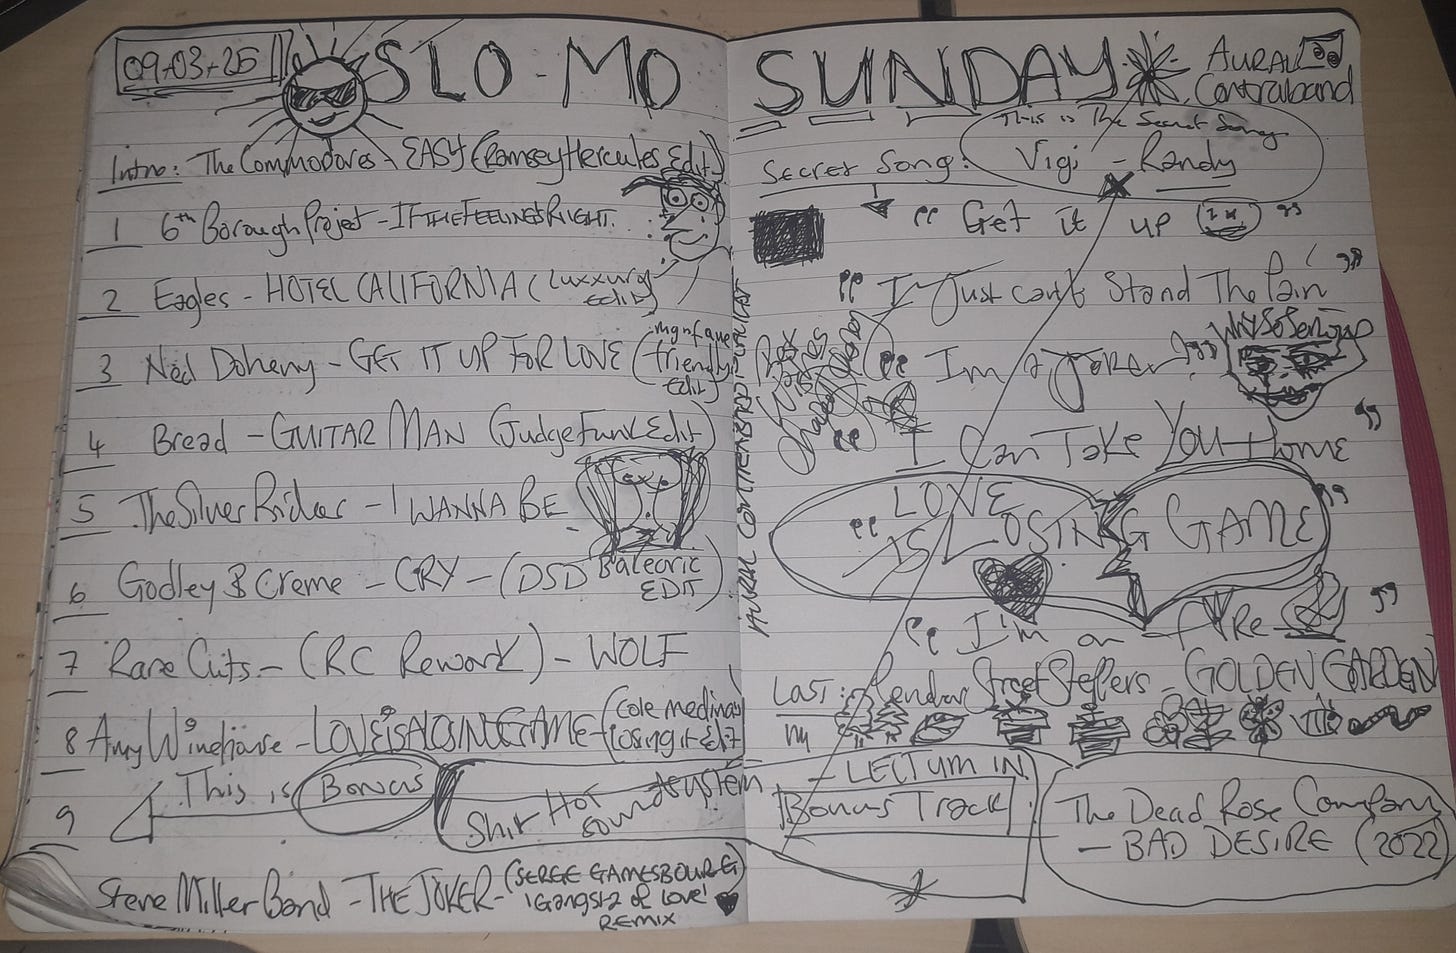 09.03.25
SLO-MO SUNDAY
AURAL
Contraband
Intro: The Commodores - EASY (Ramsey Hercules Edit)
1 6th Borough Projet - IF THE FEELINGS RIGHT.
2 Eagles - HOTEL CALIFORNIA (Luxxury edit)
3 Ned Doheny - GET IT UP FOR LOVE (mgnfque friendly edit)
4 Bread - GUITAR MAN (Judge Funk Edit)
5 The Silver Rider - I WANNA BE
6 Godley & Creme - CRY - (DSD Balearic EDIT)
7 Rare Cuts - (RC Rework) - WOLF
8 Amy Winehouse - LOVE IS A LOSING GAME - (Cole Medinas losing it Edit
This is Bonus
9
Shit Hot Soundsystem - LECTUM IN
Steve Miller Band - THE JOKER - (SERGE GAMESBOURG 'Gangst2 of Love' REMIX
AURAL CONTRABAND
This is The Secret Song
Secret Song: Vigi - Randy
"Get it up"
"I Just can't Stand The Pain"
"Im a Joker"
WHY SO SERIOUS
"I Can Take You Home"
"LOVE IS LOSING GAME"
"I'm on FIRE"
LAST: Street Steppers - GOLDEN GARDEN
Bonus Track
The Dead Rose Company
- BAD DESIRE (2022)